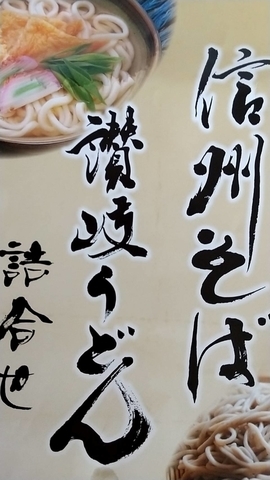 信州そば
讃岐うどん
詰合せ